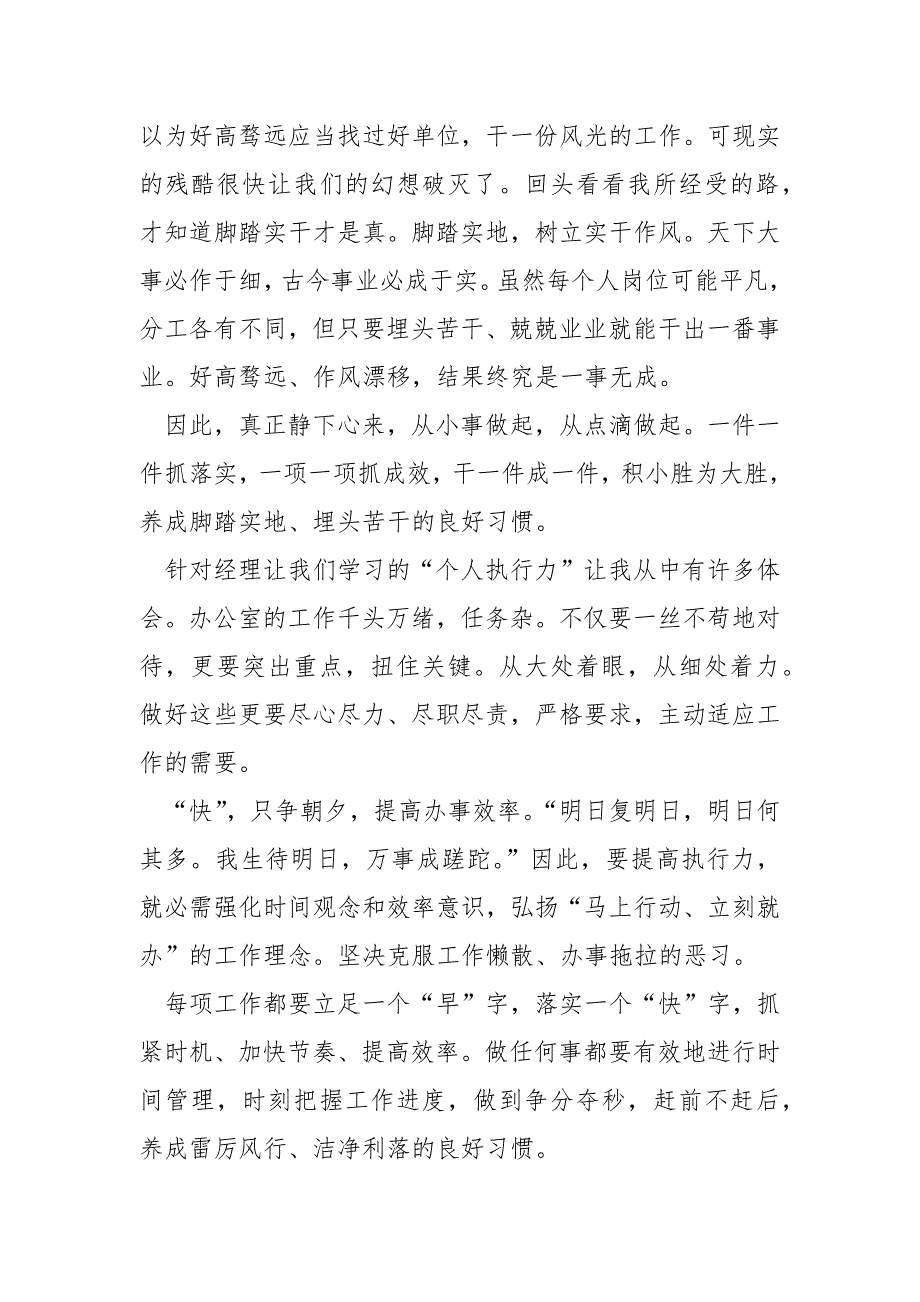 以为好高骛远应当找过好单位，干一份风光的工作。可现实
的残酷很快让我们的幻想破灭了。回头看看我所经受的路，
才知道脚踏实干才是真。脚踏实地，树立实干作风。天下大
事必作于细，古今事业必成于实。虽然每个人岗位可能平凡，
分工各有不同，但只要埋头苦干、兢兢业业就能干出一番事
业。好高骛远、作风漂移，结果终究是一事无成。
因此，真正静下心来，从小事做起，从点滴做起。一件一
件抓落实，一项一项抓成效，干一件成一件，积小胜为大胜，
养成脚踏实地、埋头苦干的良好习惯。
针对经理让我们学习的“个人执行力”让我从中有许多体
会。办公室的工作千头万绪，任务杂。不仅要一丝不苟地对
待，更要突出重点，扭住关键。从大处着眼，从细处着力。
做好这些更要尽心尽力、尽职尽责，严格要求，主动适应工
作的需要。
“快”，只争朝夕，提高办事效率。“明日复明日，明日何
其多。我生待明日，万事成蹉跎。”因此，要提高执行力，
就必需强化时间观念和效率意识，弘扬“马上行动、立刻就
办”的工作理念。坚决克服工作懒散、办事拖拉的恶习。
每项工作都要立足一个“早”字，落实一个“快”字，抓
紧时机、加快节奏、提高效率。做任何事都要有效地进行时
间管理，时刻把握工作进度，做到争分夺秒，赶前不赶后，
养成雷厉风行、洁净利落的良好习惯。